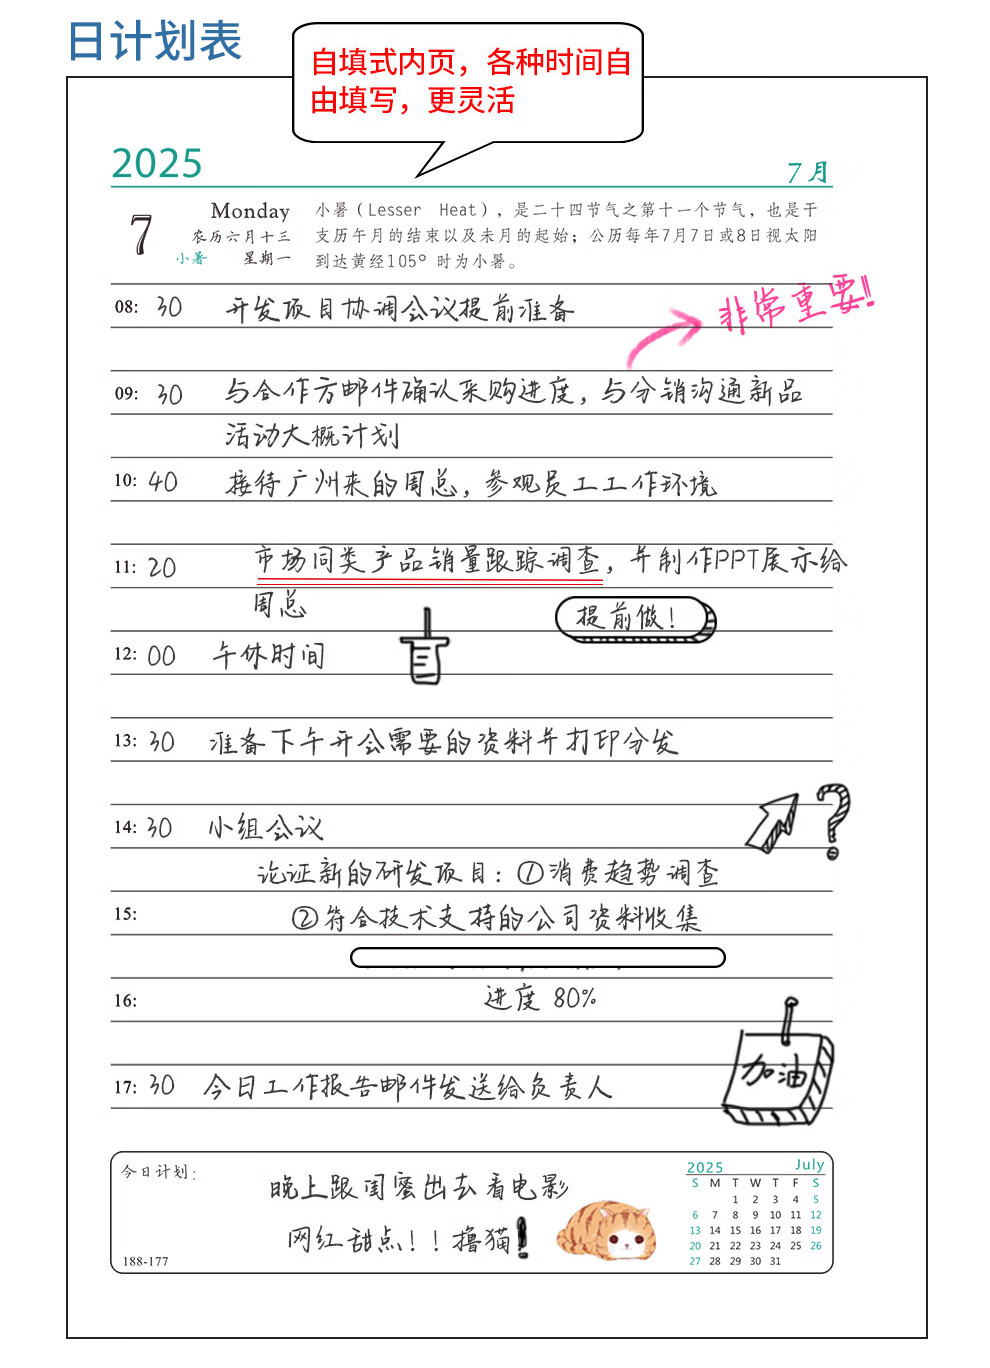 日计划表
自填式内页，各种时间自
由填写，更灵活
2025
7月
7
Monday
农历六月十三
小暑 星期一
小暑（Lesser Heat），是二十四节气之第十一个节气，也是干
支历午月的结束以及未月的起始；公历每年7月7日或8日视太阳
到达黄经105° 时为小暑。
08: 30 开发项目协调会议提前准备
非常重要!!
09: 30 与合作方邮件确认采购进度，与分销沟通新品
活动大概计划
10: 40 接待广州来的周总，参观员工工作环境
11: 20 市场同类产品销量跟踪调查，并制作PPT展示给
周总
提前做！
12: 00 午休时间
13: 30 准备下午开会需要的资料并打印分发
14: 30 小组会议
?
论证新的研发项目：①消费趋势调查
15: ②符合技术支持的公司资料收集
16: 进度 80%
加油
17: 30 今日工作报告邮件发送给负责人
今日计划:
晚上跟闺蜜出去看电影
网红甜点！！撸猫！
188-177
2025 July
S M T W T F S
1 2 3 4 5
6 7 8 9 10 11 12
13 14 15 16 17 18 19
20 21 22 23 24 25 26
27 28 29 30 31